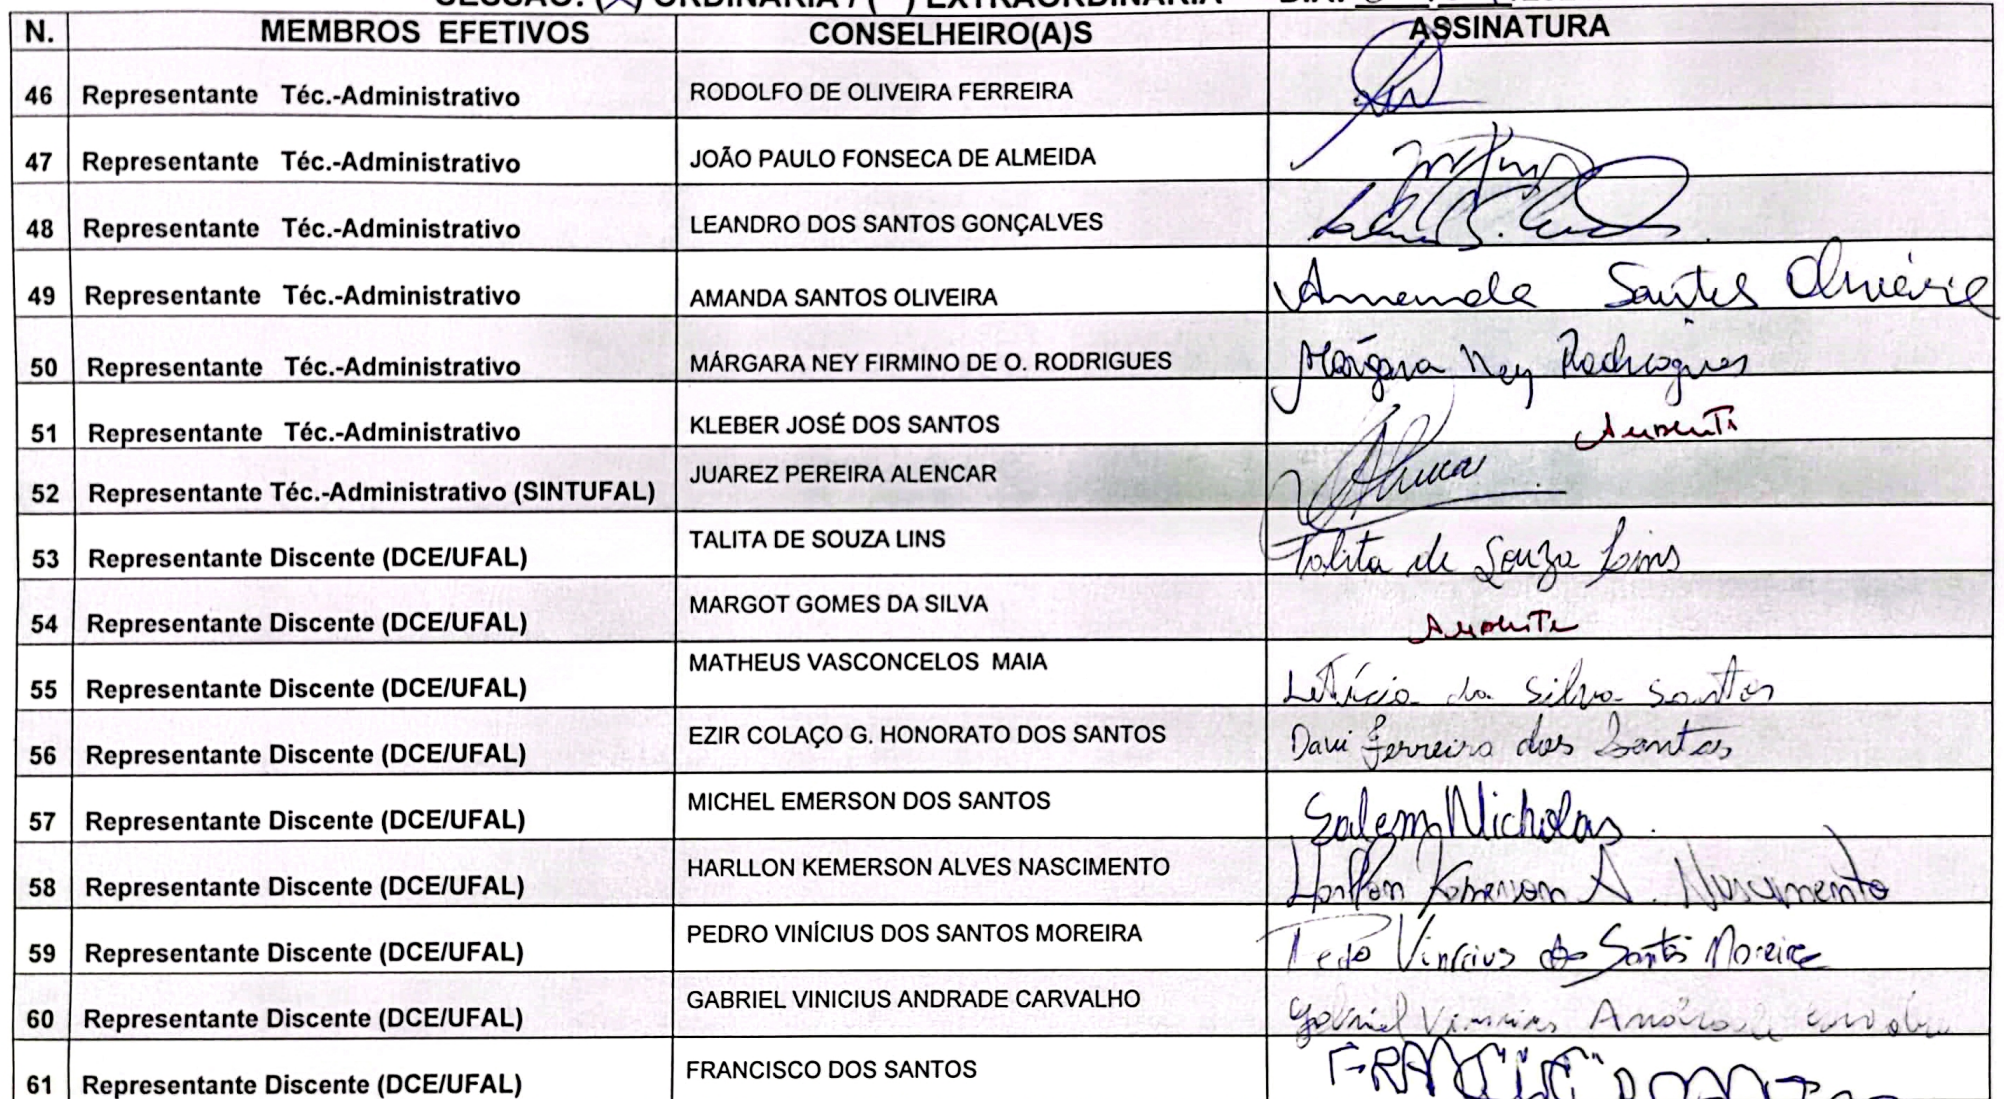 SESSÃO: (X) ORDINÁRIA / ( ) EXTRAORDINÁRIA DIA:
N. MEMBROS EFETIVOS CONSELHEIRO(A)S ASSINATURA
46 Representante Téc.-Administrativo RODOLFO DE OLIVEIRA FERREIRA
47 Representante Téc.-Administrativo JOÃO PAULO FONSECA DE ALMEIDA
48 Representante Téc.-Administrativo LEANDRO DOS SANTOS GONÇALVES
49 Representante Téc.-Administrativo AMANDA SANTOS OLIVEIRA Amanda Santos Oliveira
50 Representante Téc.-Administrativo MÁRGARA NEY FIRMINO DE O. RODRIGUES Márgara Ney Rodrigues
51 Representante Téc.-Administrativo KLEBER JOSÉ DOS SANTOS Ausente
52 Representante Téc.-Administrativo (SINTUFAL) JUAREZ PEREIRA ALENCAR
53 Representante Discente (DCE/UFAL) TALITA DE SOUZA LINS Talita de Souza Lins
54 Representante Discente (DCE/UFAL) MARGOT GOMES DA SILVA Ausente
55 Representante Discente (DCE/UFAL) MATHEUS VASCONCELOS MAIA Letícia da Silva Santos
56 Representante Discente (DCE/UFAL) EZIR COLAÇO G. HONORATO DOS SANTOS Davi Ferreira dos Santos
57 Representante Discente (DCE/UFAL) MICHEL EMERSON DOS SANTOS Salem Nicholas
58 Representante Discente (DCE/UFAL) HARLLON KEMERSON ALVES NASCIMENTO Harllon Kemerson A. Nascimento
59 Representante Discente (DCE/UFAL) PEDRO VINÍCIUS DOS SANTOS MOREIRA Pedro Vinícius dos Santos Moreira
60 Representante Discente (DCE/UFAL) GABRIEL VINICIUS ANDRADE CARVALHO Gabriel Vinicius Andrade Carvalho
61 Representante Discente (DCE/UFAL) FRANCISCO DOS SANTOS